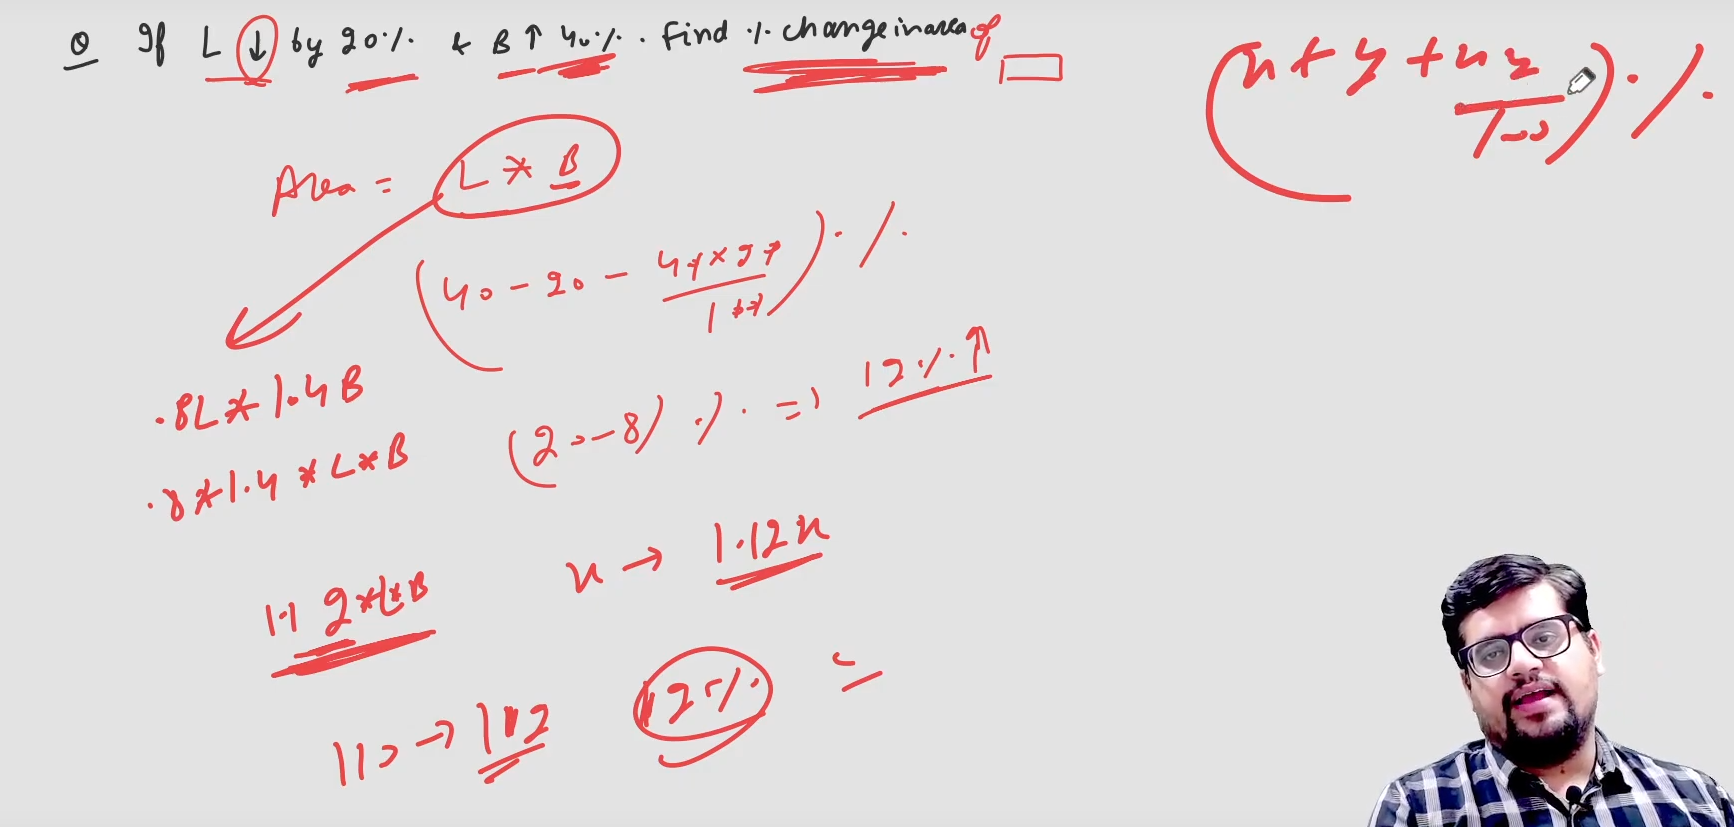 Q If L ↓ by 20% & B ↑ 40%. Find % change in area of
(x + y + xy/100)%
Area = L * B
(40 - 20 - 40×20/100)%
.8L * 1.4B
(20-8)% => 12%↑
.8*1.4*L*B
x → 1.12x
1.12*L*B
→ 112
12%